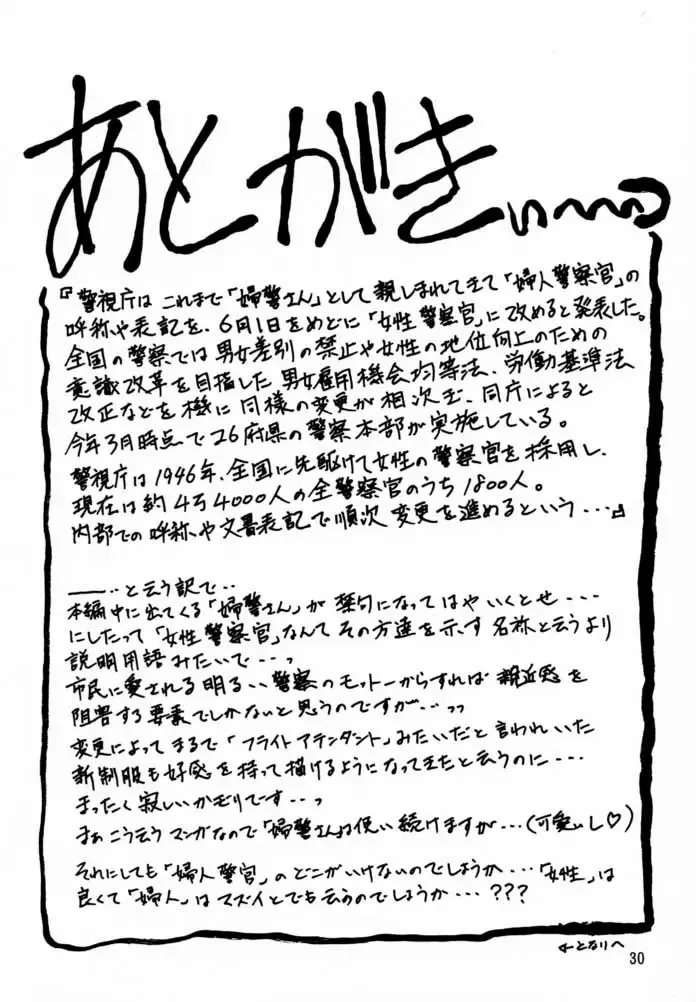 あとがきぃ〜〜っ
『警視庁は これまで「婦警さん」として親しまれてきて「婦人警察官」の
呼称や表記を、6月1日をめどに「女性警察官」に改めると発表した。
全国の警察では男女差別の禁止や女性の地位向上のための
意識改革を目指した男女雇用機会均等法、労働基準法
改正などを機に同様の変更が相次ぎ、同庁によると
今年3月時点で26府県の警察本部が実施している。
警視庁は1946年、全国に先駆けて女性の警察官を採用し、
現在は約4万4000人の全警察官のうち1800人。
内部での呼称や文書表記で順次変更を進めるという・・・』
――‥と云う訳で‥
本編中に出てくる「婦警さん」が禁句になってはやいくとせ・・・
にしたって「女性警察官」なんてその方達を示す名称と云うより
説明用語みたいで・・・っ
市民に愛される明るい警察のモットーからすれば親近感を
阻害する要素でしかないと思うのですが・・・っっ
変更によってまるで「フライトアテンダント」みたいだと言われいた
新制服も好感を持って描けるようになってきたと云うのに・・・
まったく寂しいかぎりです・・・っ
まぁこう云うマンガなので「婦警さん」は使い続けますが・・・(可愛いし♡)
それにしても「婦人警官」のどこがいけないのでしょうか・・・「女性」は
良くて「婦人」はマズイとでも云うのでしょうか・・・???
←となりへ
30